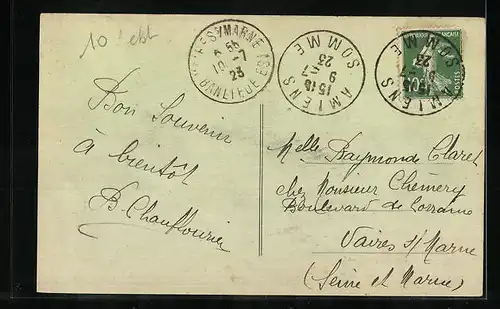 10
Bon Souvenir
à bientôt
B. Chauffourier
AMIENS
SOMME
15 15
9 - 7
23
AMIENS
SOMME
23
POSTES
10 - 7
23
BANLIEUE EST
Melle Raymonde Claret
chez Monsieur Chémery
Boulevard de Lorraine
Vaires s/ Marne
(Seine et Marne)